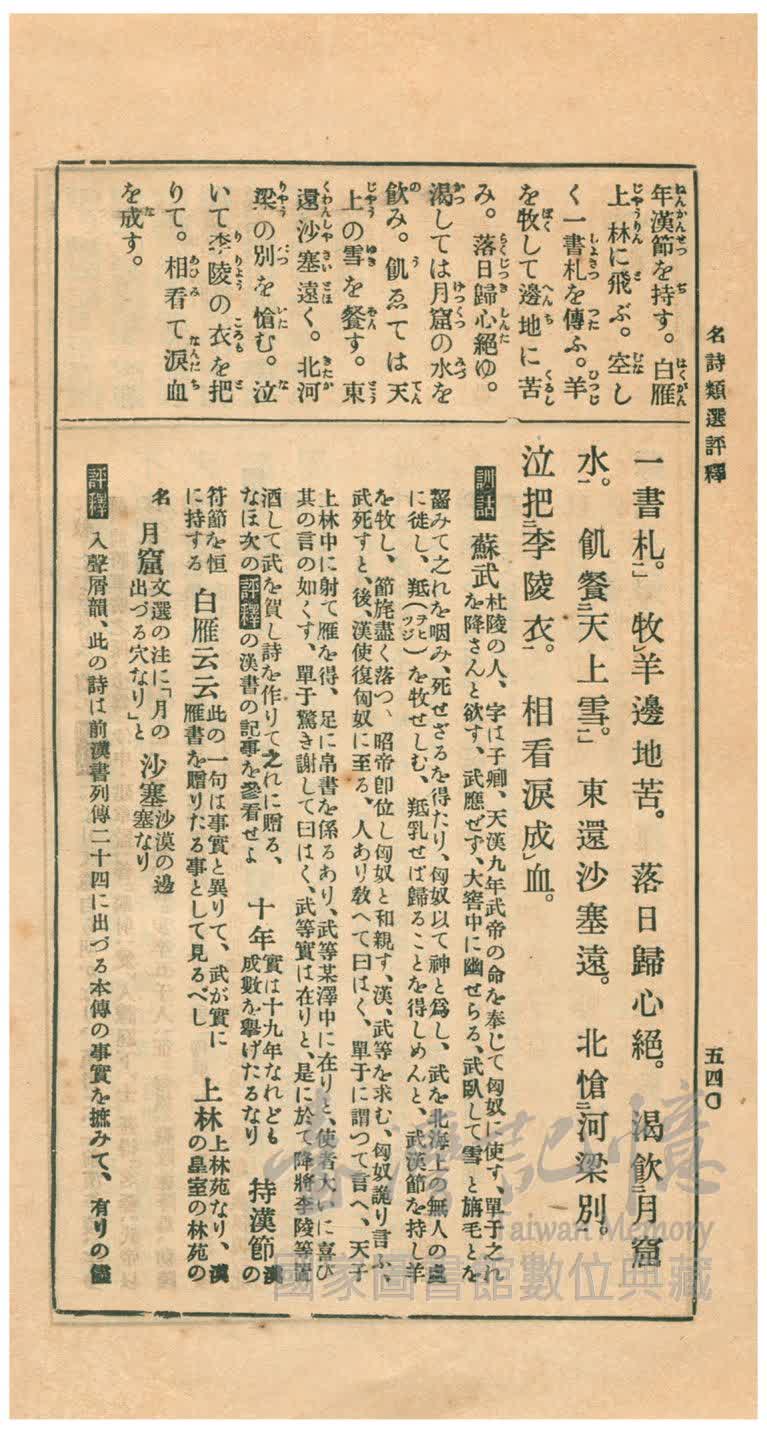 名詩類選評釋
五四〇
年漢節を持す。白雁
上林に飛ぶ。空し
く一書札を傳ふ。羊
を牧して邊地に苦
み。落日歸心絕ゆ。
渴しては月窟の水を
飮み。飢ゑては天
上の雪を餐す。東
還沙塞遠く。北河
梁の別を愴む。泣
いて李陵の衣を把
りて。相看て淚血
を成す。
一書札。 牧羊邊地苦。 落日歸心絕。 渴飮月窟
水。 飢餐天上雪。 東還沙塞遠。 北愴河梁別。
泣把李陵衣。 相看淚成血。
訓詁 蘇武 杜陵の人、字は子卿、天漢九年武帝の命を奉じて匈奴に使す、單于之れ
を降さんと欲す、武應ぜず、大窖中に幽せらる、武臥して雪と旃毛とを
齧みて之れを咽み、死せざるを得たり、匈奴以て神と爲し、武を北海上の無人の處
に徙し、羝(ヲヒツジ)を牧せしむ、羝乳せば歸ることを得しめんと、武漢節を持し羊
を牧し、節旄盡く落つ、昭帝卽位し匈奴と和親す、漢、武等を求む、匈奴詭り言ふ、
武死すと、後、漢使復匈奴に至る、人あり敎へて曰はく、單于に謂つて言へ、天子
上林中に射て雁を得、足に帛書を係るあり、武等某澤中に在りと、使者大いに喜び
其の言の如くす、單于驚き謝して曰はく、武等實は在りと、是に於て降將李陵等置
酒して武を賀し詩を作りて之れに贈る、
なほ次の評釋の漢書の記事を參看せよ 十年 實は十九年なれども
成數を擧げたるなり 持漢節 漢の
符節を恒
に持する 白雁云云 此の一句は事實と異りて、武が實に
雁書を贈りたる事として見るべし 上林 上林苑なり、漢
の皇室の林苑の
名 月窟 文選の注に「月の
出づる穴なり」と 沙塞 沙漠の邊
塞なり
評釋 入聲屑韻、此の詩は前漢書列傳二十四に出づる本傳の事實を摭みて、有りの儘
臺灣記憶
Taiwan Memory
國家圖書館數位典藏